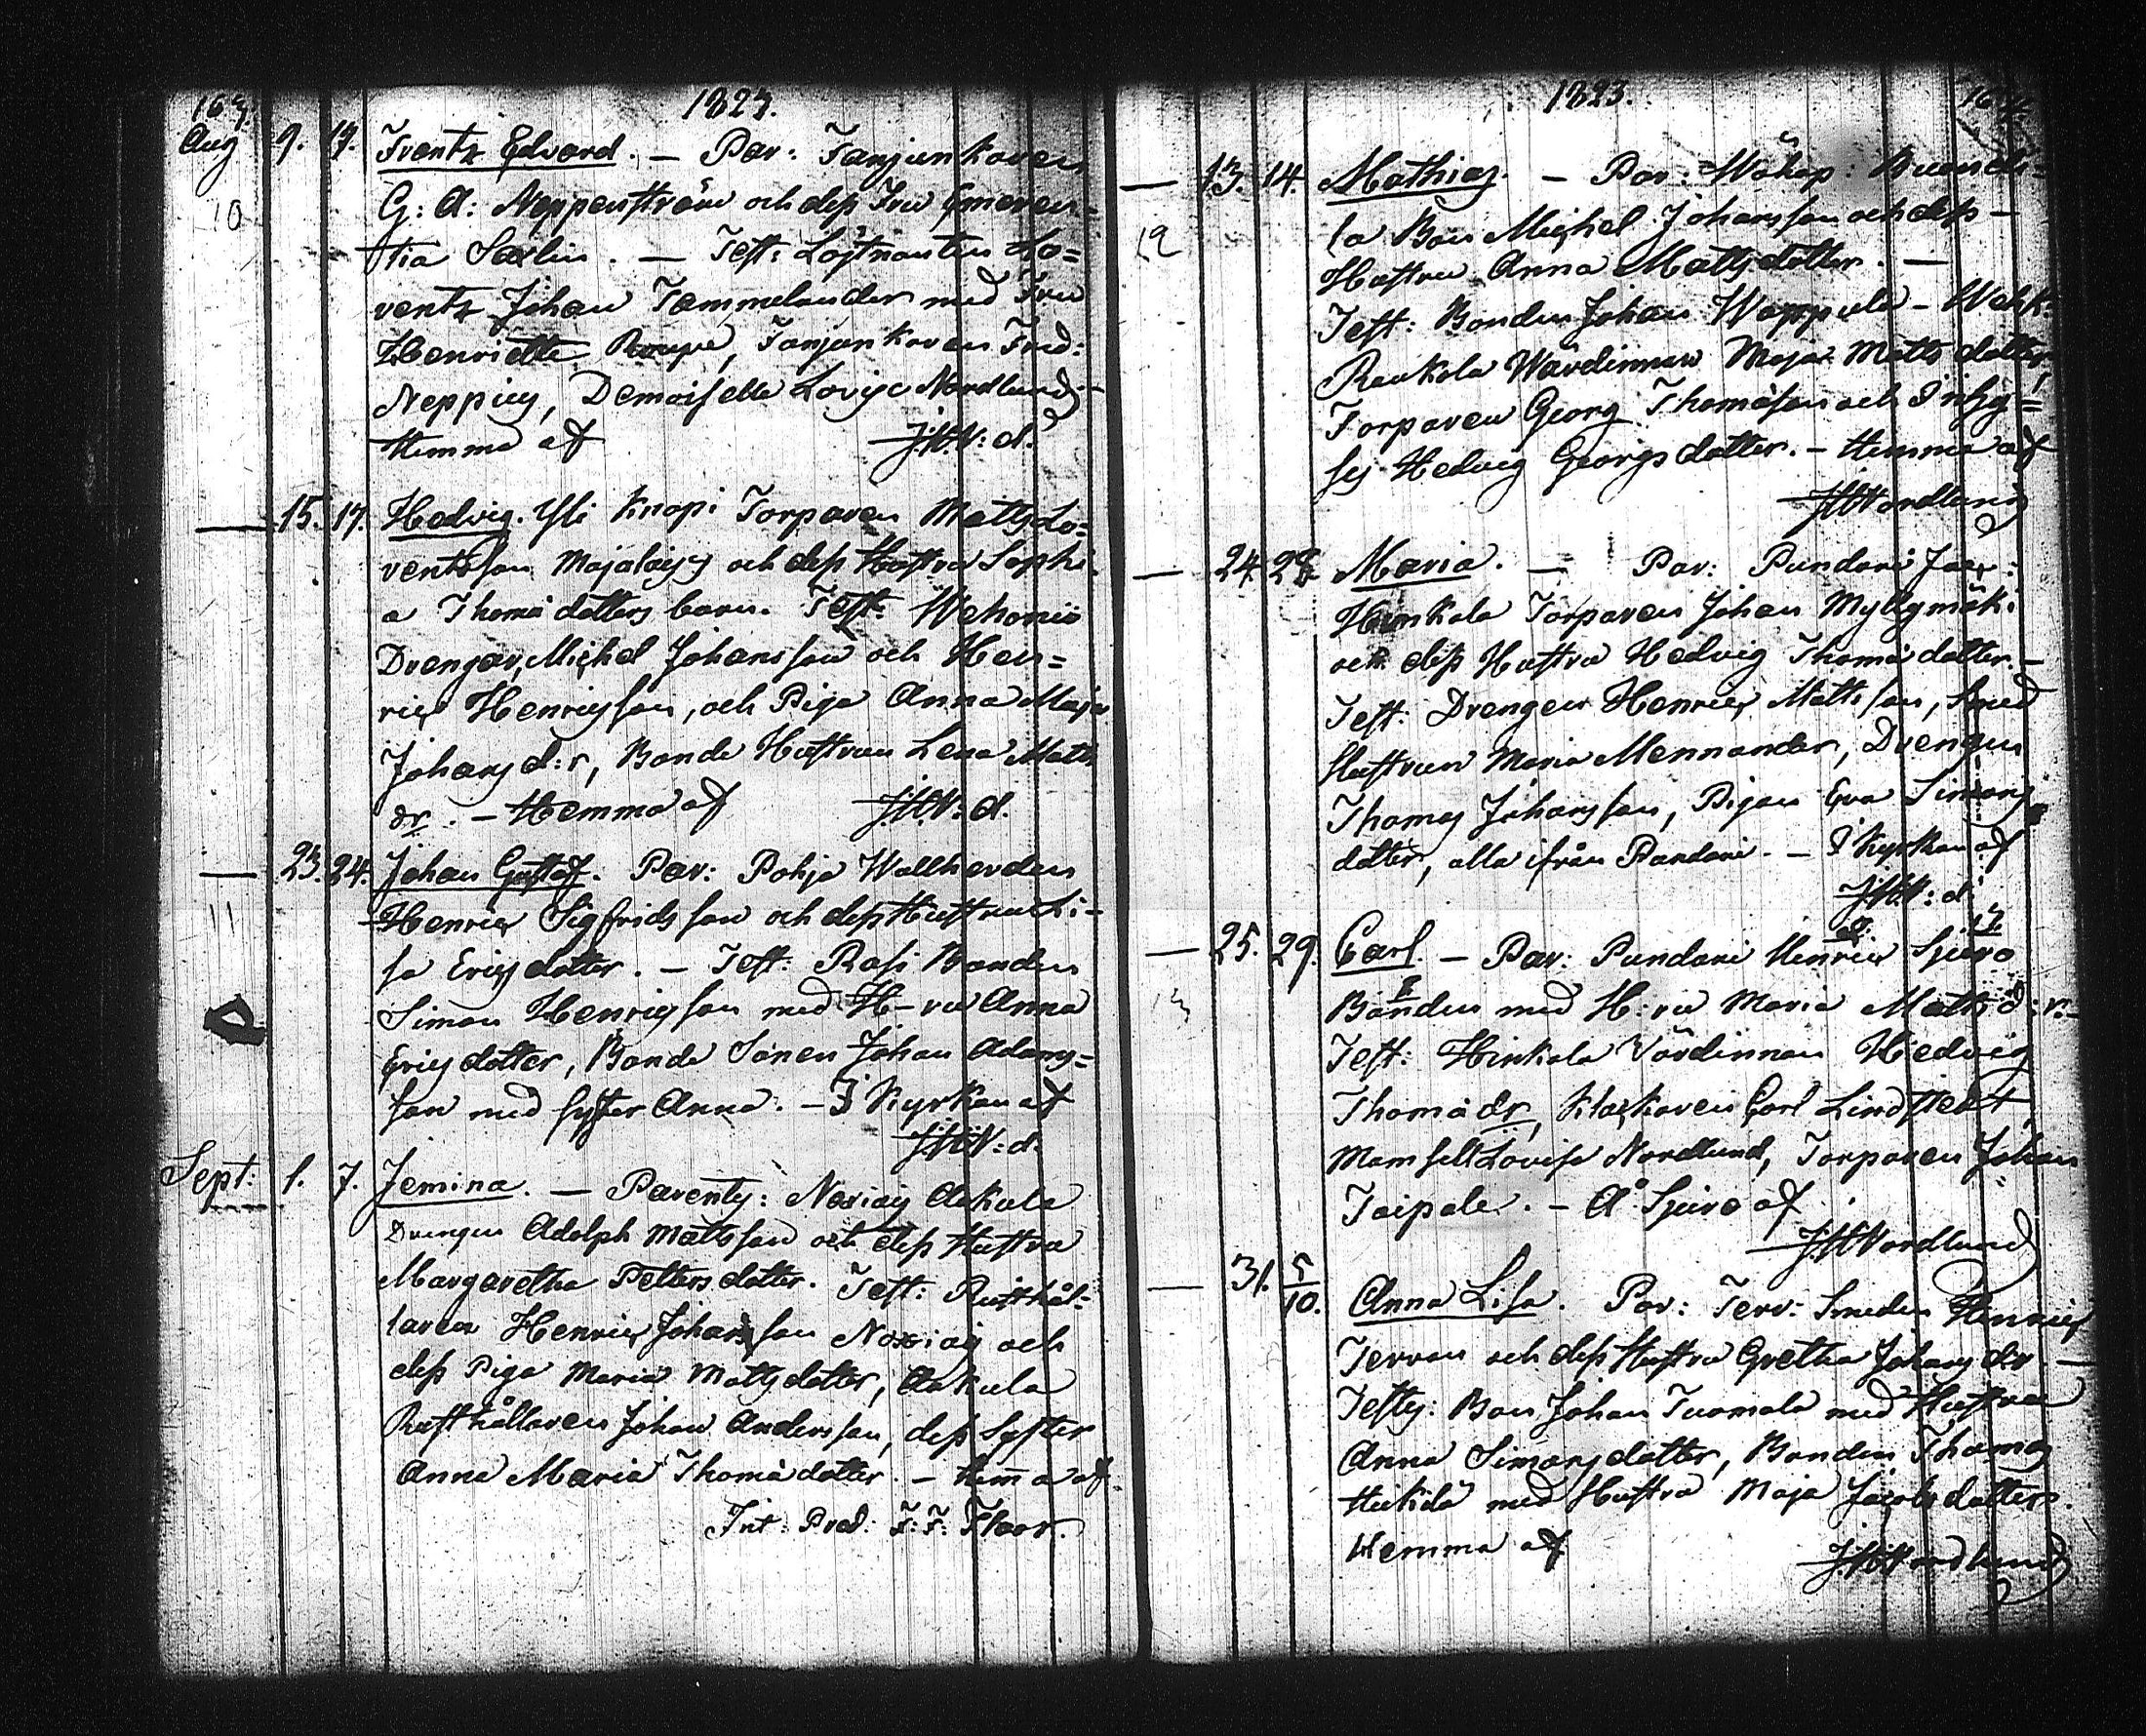 163.
1823.
Aug 9. 17. Frantz Edvard. — Par: Fanjunkaren
10 G: A: Neppenström och dess Fru Emeren=
tia Saxlin. — Test: Löjtnanten Lo=
rentz Johan Tammelander med Fru
Henriette Roupe, Fanjunkaren Fred:
Neppius, Demoiselle Lovisa Nordlund —
Hemma af J.H.N:d.
— 15. 17. Hedvig. Yli Knopi Torparen Matts Lo=
rentsson Majalais och dess Hustru Sophi=
a Thomædotters barn. Test: Wahoniö
Drengar, Michel Johansson och Hen=
ric Henricsson, och Piga Anna Maja
Johansd:r, Bonde Hustrun Lena Matts
dr. — Hemma af J.H.N:d.
— 23. 24. Johan Gustaf. Par: Pohja Wallherden
11 Henric Sigfridsson och dess Hustru Li-
sa Ericsdotter. — Test: Rasi Bonden
Simon Henricsson med H-ru Anna
Ericsdotter, Bonde Sonen Johan Adams=
son med syster Anna. — I Kyrkan af
J.H.N:d.
Sept: 1. 7. Jemina. — Parents: Noxiais Aakula
Drengen Adolph Mattsson och dess Hustru
Margaretha Pettersdotter. Test: Rusthål-
laren Henric Johansson Noxiais och
dess Piga Maria Mattsdotter, Aakula
Rusthållaren Johan Andersson, dess Syster
Anna Maria Thomædotter. — Hemma af
Int: Pred: F: F: Floor.
1823.
164.
— 13. 14. Mathias. — Par: Wåhap:
12 la Bon Michel Johansson och dess —
Hustru Anna Mattsdotter. —
Test: Bonden Johan Wappula — Wahk:
Raukola Wärdinnan Maja Mattsdotter,
Torparen Georg Thomasson och Inhy=
ses Hedvig Georgsdotter. — Hemma af
JHNordlund
— 24. 28. Maria. — Par: Pundari Jaer:
Hinkala Torparen Johan Myllymäki
och dess Hustru Hedvig Thomædotter. —
Test: Drengen Henric Mattsson, Smed
Hustrun Maria Mennander, Drengen
Thomas Johansson, Pigan Eva Simons
dotter, alla ifrån Pundari. — I Kyrkan af
J.H.N:d.
— 25. 29. Carl. — Par: Pundari Henric Sjura
13 Bonden med H:ru Maria Matts d:r. —
Test: Hinkala Värdinnan Hedvig
Thomædr, Klockaren Carl Lindstedt,
Mamsell Lovisa Nordlund, Torparen Johan
Taipale. — Å Sjura af
JHNordlund
— 31. 5/10. Anna Lisa. Par: Terv: Smeden Henric
Tervan och dess Hustru Gretha Johans dr. —
Tests: Bon Johan Tuomala med Hustru
Anna Simonsdotter, Bonden Thomas
med Hustru Maja Jacobsdotter.
Hemma af JHNordlund